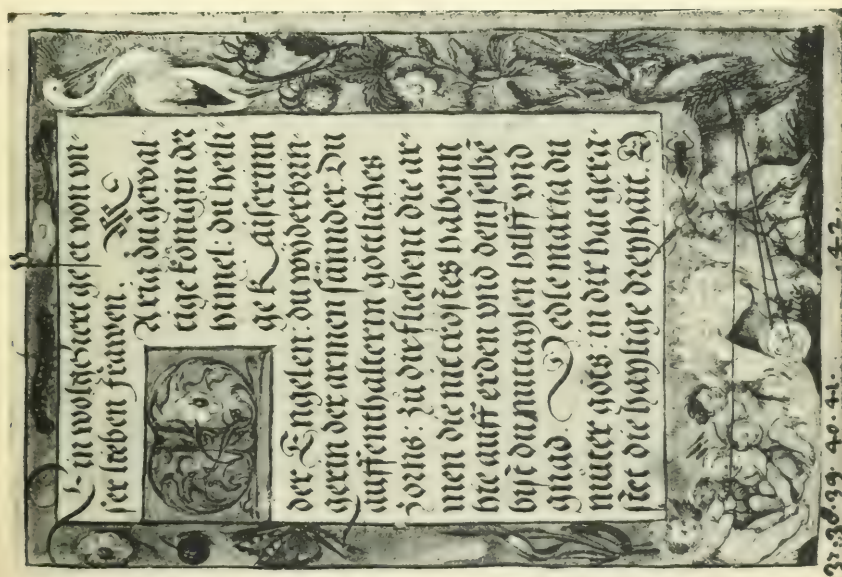 Ein wolgeziert gepet von vn-
ser lieben frawen.
M Aria du gewal
tige königin der
himel: du heili-
ge Kaiserinn
der Engelen: du wyderbrin-
gerin der armen sünnder. Du
auffenthalterin gottliches
zorns: zu dir fliehent die ar-
men die nit trostes habenn
hie auff erden vnd denselbē
bist du mittaylen hilff vnd
gnad. O edle maria du
muter gots: in dir hat gera-
stet die haylige dreyhait. O
37. 38. 39. 40. 41. 42.